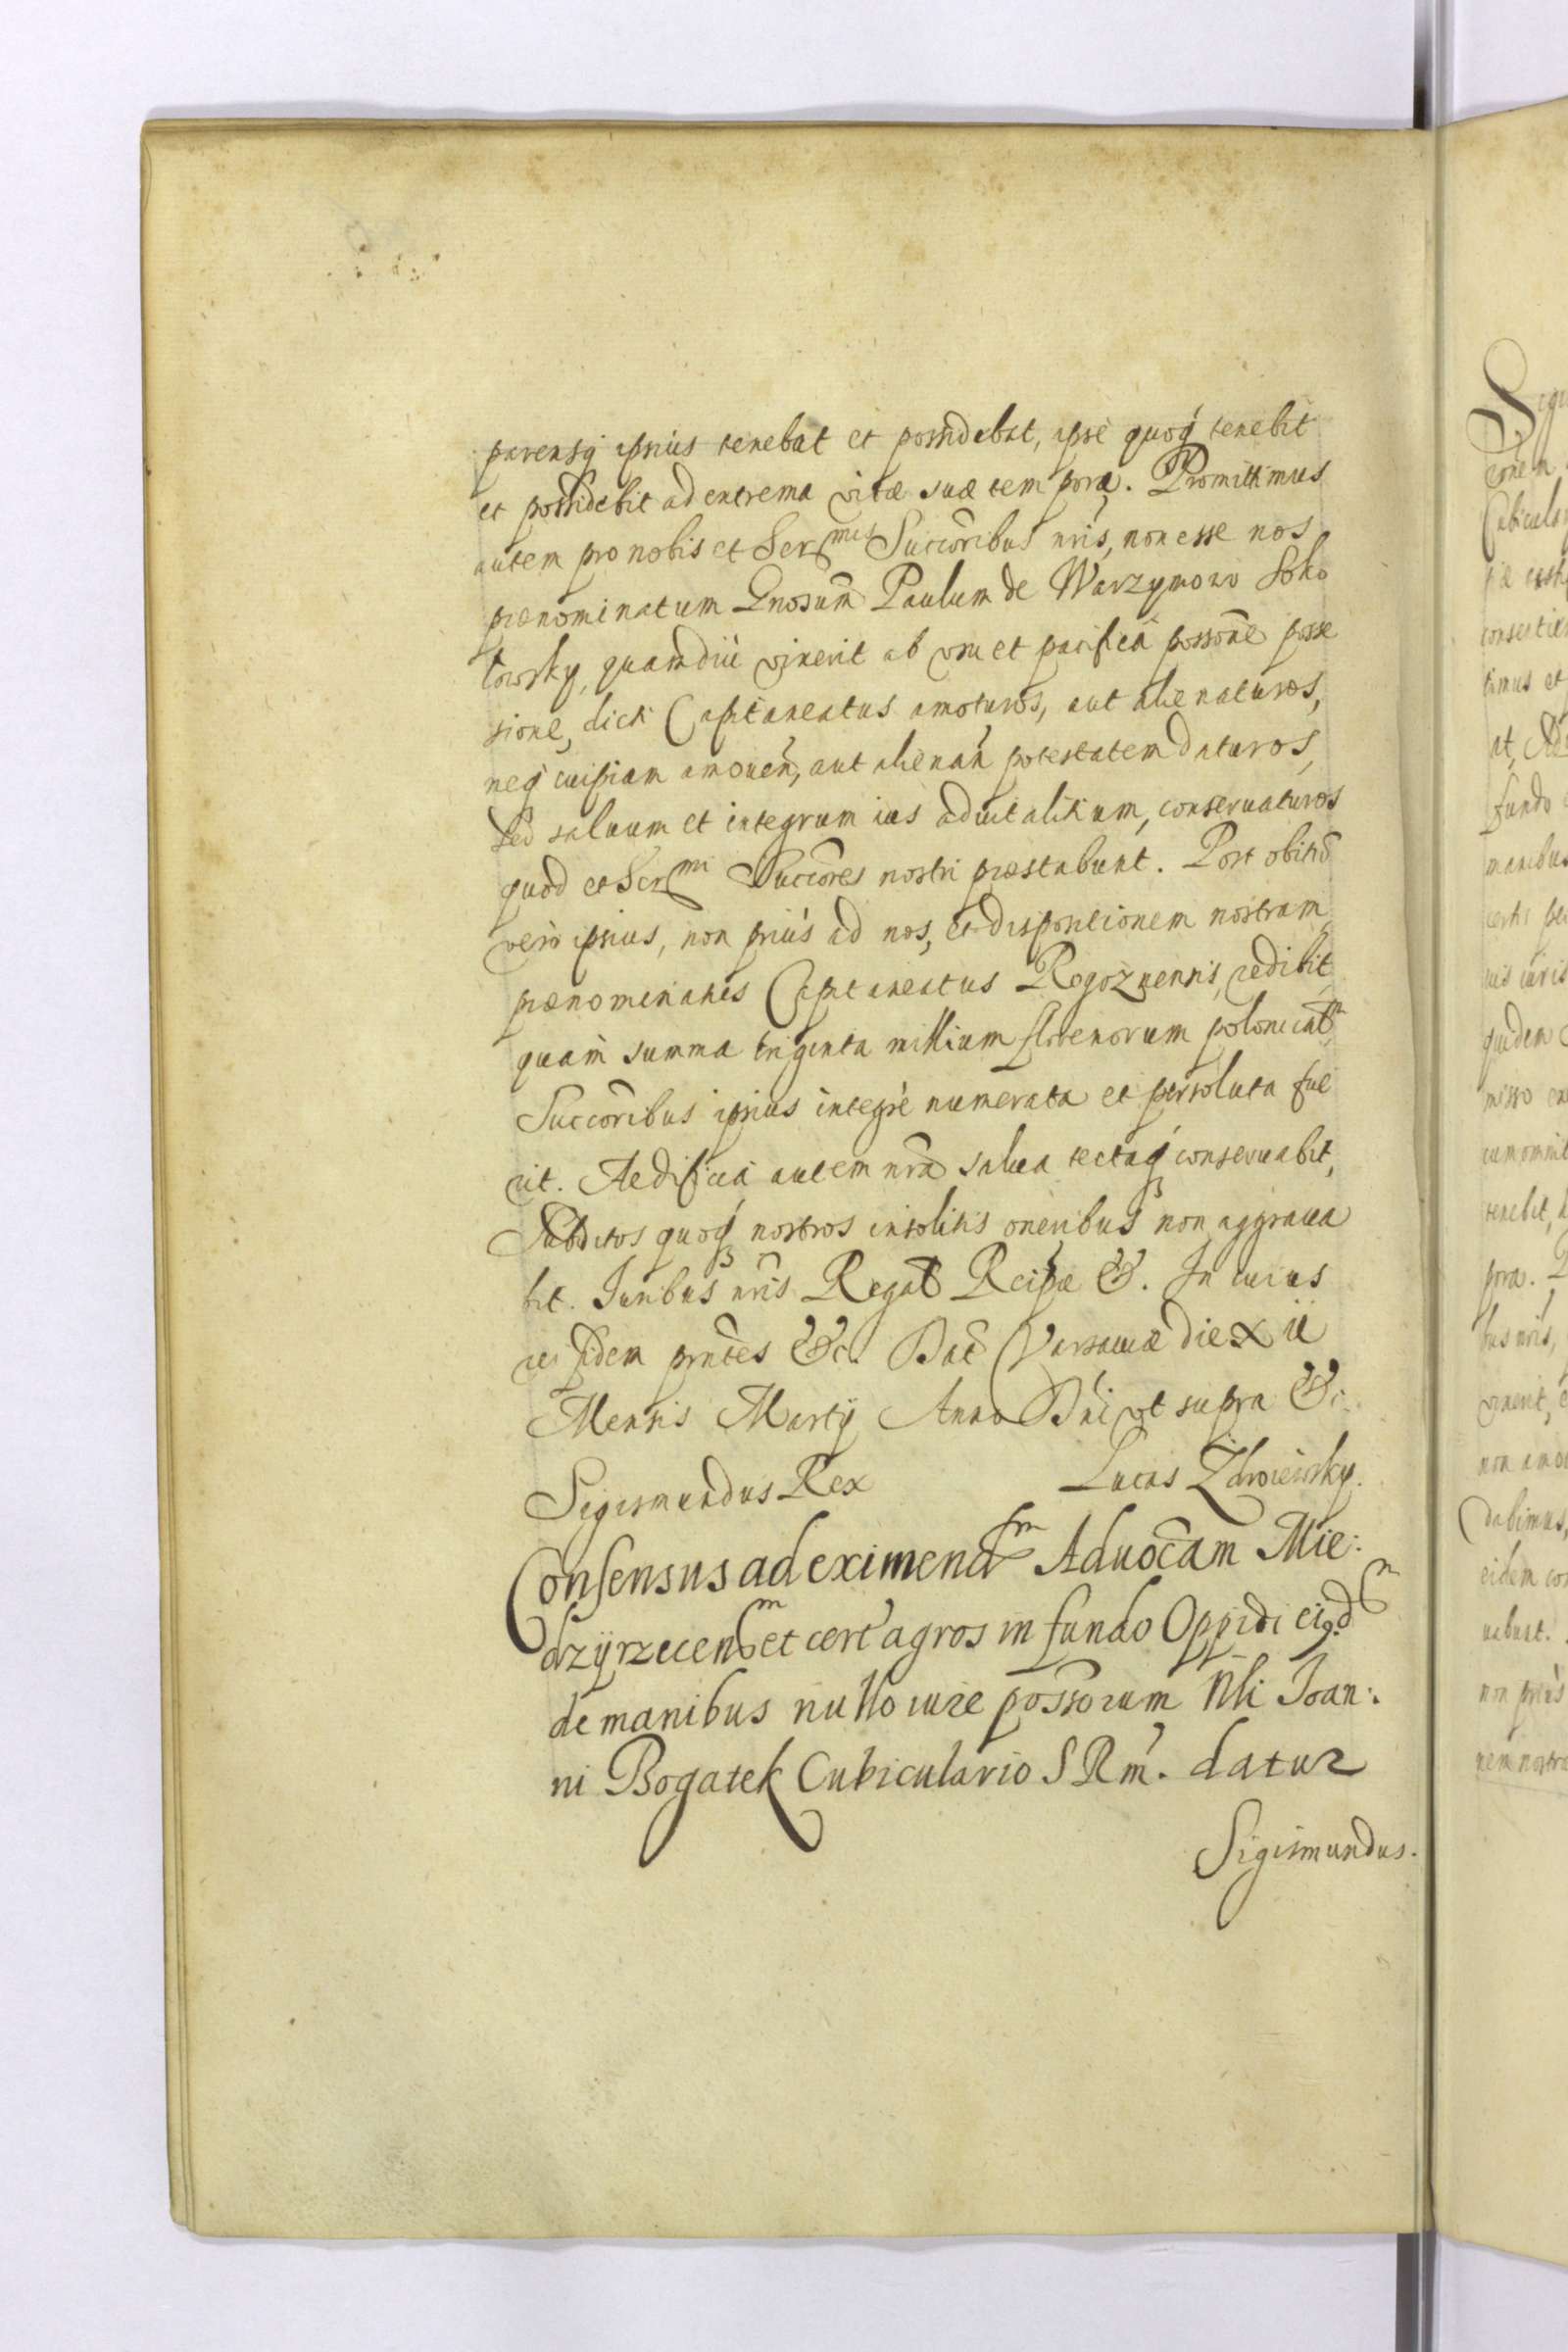 parensq ipsius tenebat et possidebat, ipse quoq tenebit
et possidebit ad extrema vitæ suæ tempora. Promittimus
autem pro nobis et Ser mis Succoribus nris, non esse nos
prænominatum Gnosum Paulum de Warzymowo Soko
lowsky, quamdiu vixerit ab usu et pacifica possone posse
sione, dicti Capitaneatus amoturos, aut alienaturos,
neq cuipiam amouen, aut alienan potestatem daturos,
sed saluum et integrum ius aduitalitium, conseruaturos
quod et Ser mi Succores nostri præstabunt. Post obitu
vero ipsius, non prius ad nos, et dispositionem nostram
prænominatus Capitaneatus Rogoznensis, redibit,
quam summa triginta millium florenorum polonical m
Succoribus ipsius integrè numerata et persoluta fue
rit. Aedificia autem nra salua tectaq conseruabit,
Subditos quoq nostros insolitis oneribus non aggraua
bit. Iuribus nris Regal Reipæ &. In cuius
rei fidem prntes &c. Dat Varsauiæ die X ii
Mensis Martij Anno Dni vt supra &c.
Sigismundus Rex Lucas Zdroiewsky.
Consensus ad eximend m Aduocam Mie:
dzyrzecen m et cert agros in fundo Oppidi eiqd m
de manibus nullo iure possorum Nli Ioan:
ni Bogatek Cubiculario S R m. datur
Sigismundus.
Sigi
fundo
manibus
quidem
tenebit,
dabimus,
eidem
non prius